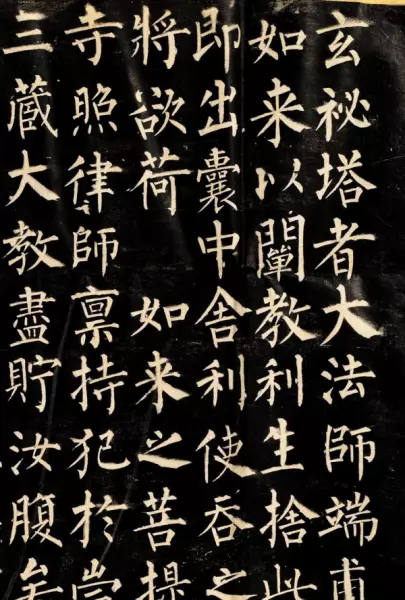 玄祕塔者大法師端甫
如来以闡教利生捨此
即出囊中舍利使吞之
將欲荷 如来之菩提
寺照律師禀持犯於崇
三藏大教盡貯汝腹矣